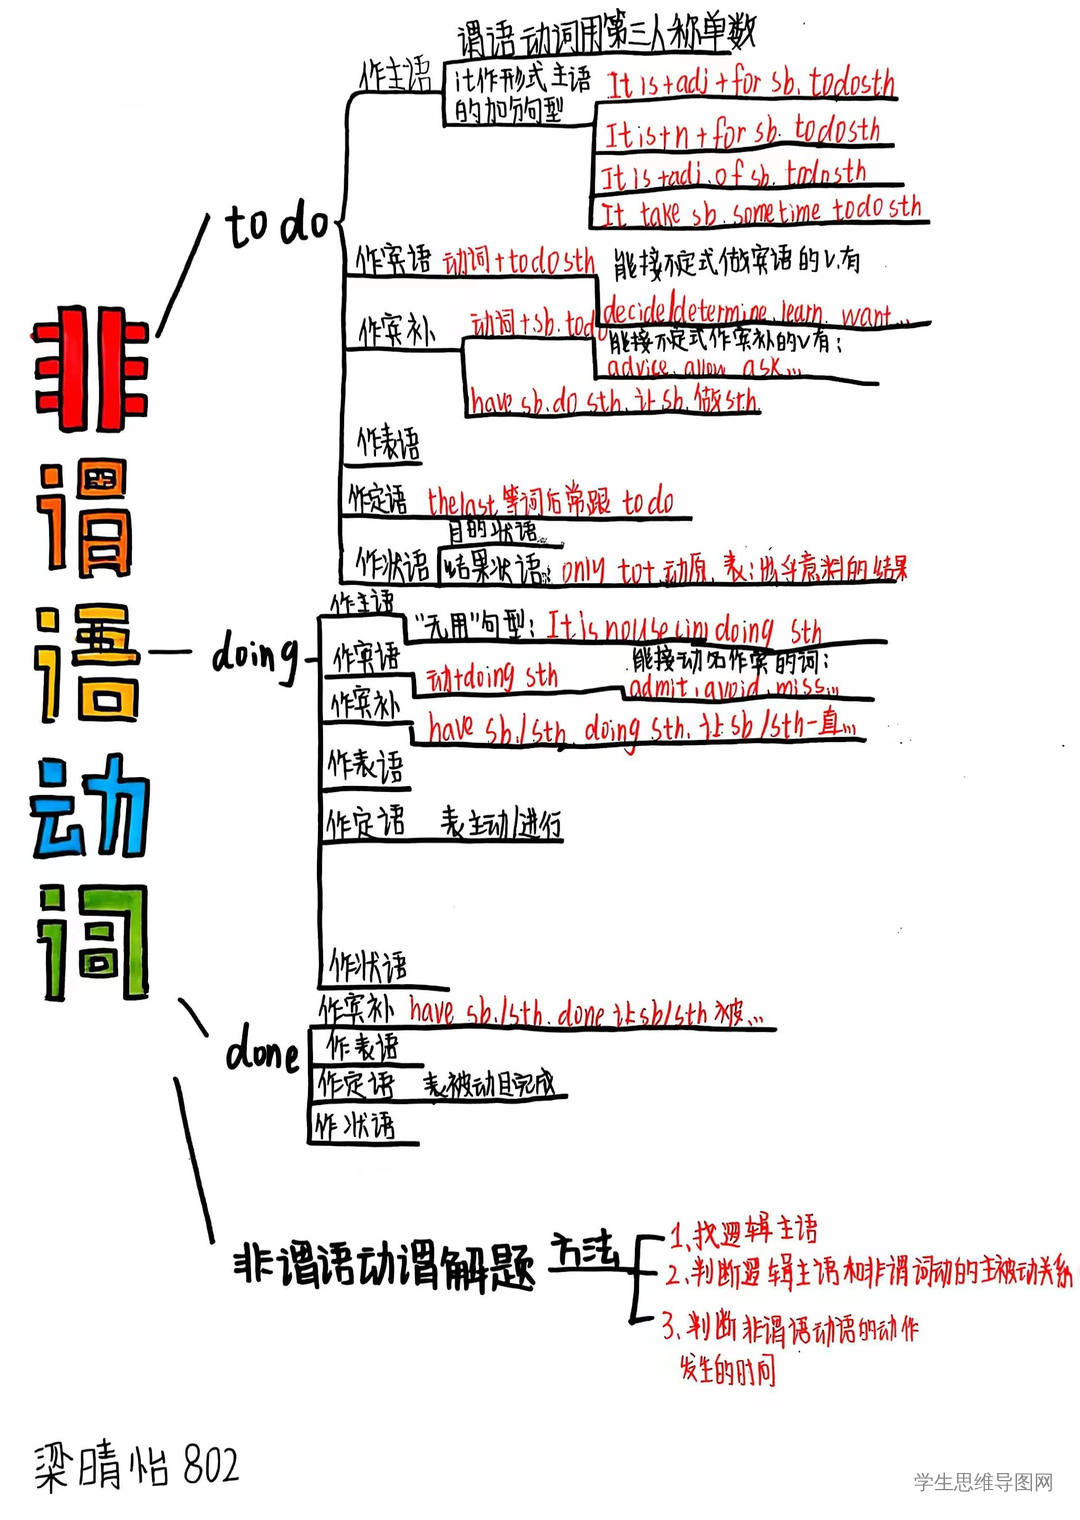 非谓语动词
to do
作主语
谓语动词用第三人称单数
it作形式主语
的加分句型
It is+adj+for sb. todosth
It is+n+for sb. todosth
It is+adj.of sb. todosth
It take sb.sometime todosth
作宾语 动词+todosth
能接不定式做宾语的v.有
decide/determine.learn. want...
作宾补
动词+sb.todo
能接不定式作宾补的v有：
advice.allow ask...
have sb.do sth.让sb.做sth.
作表语
作定语 thelast等词后常跟 to do
作状语
目的状语...
结果状语：only to+动原.表：出乎意料的结果
doing
作主语
"无用"句型：It is nouse(in)doing sth
作宾语
动+doing sth
能接动名作宾的词：
admit.avoid.miss...
作宾补
have sb./sth.doing sth.让sb/sth一直...
作表语
作定语 表主动/进行
作状语
done
作宾补 have sb./sth.done让sb/sth被...
作表语
作定语 表被动且完成
作状语
非谓语动谓解题 方法
1.找逻辑主语
2.判断逻辑主语和非谓词动的主被动关系
3.判断非谓语动语的动作
发生的时间
梁晴怡802
学生思维导图网